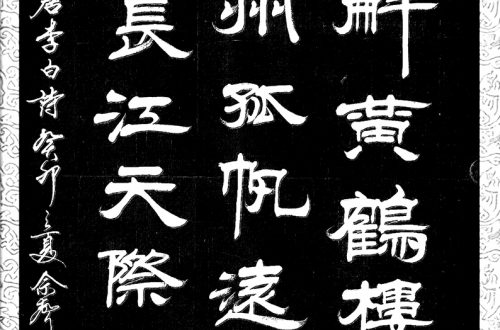 辭黃鶴樓
州孤帆遠
長江天際
唐李白詩癸卯之夏余